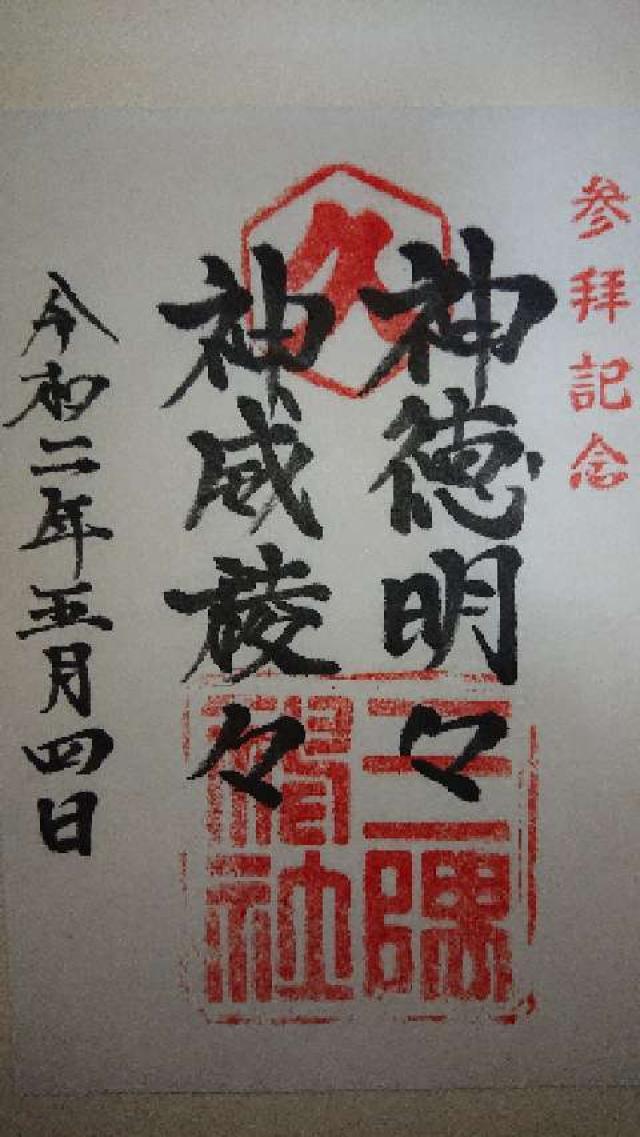 参拝記念
久
神徳明々
神威稜々
三隅神社
令和二年五月四日